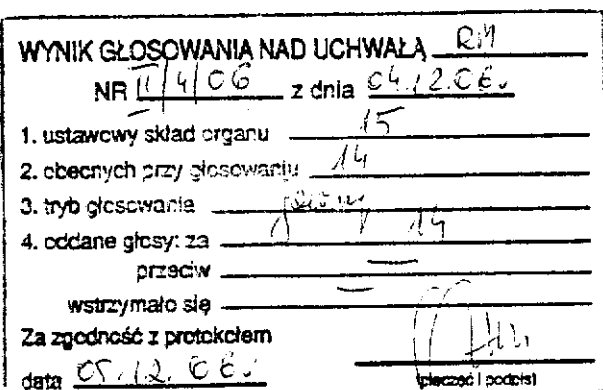 WYNIK GŁOSOWANIA NAD UCHWAŁĄ RM
NR II/4/06 z dnia 04.12.06r.
1. ustawowy skład organu 15
2. obecnych przy głosowaniu 14
3. tryb głosowania jawny
4. oddane głosy: za 14
przeciw —
wstrzymało się —
Za zgodność z protokołem
data 05.12.06r.
(pieczęć i podpis)